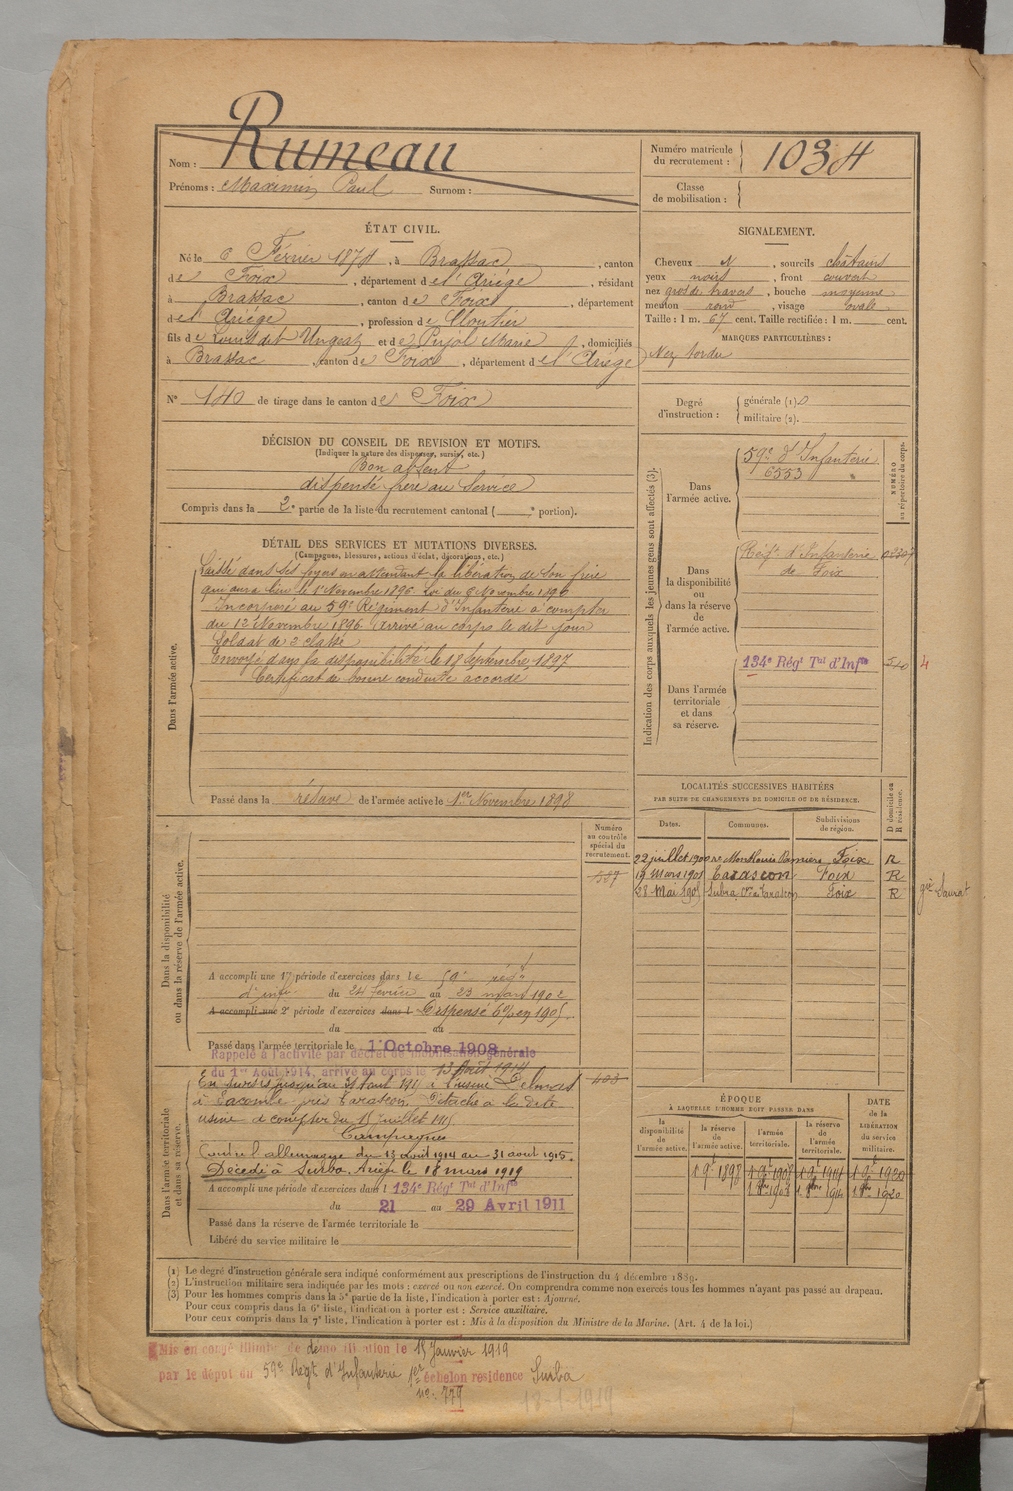 Nom : Rumeau
Prénoms : Maximin Paul Surnom :
Numéro matricule du recrutement : 1034
Classe de mobilisation :
ÉTAT CIVIL.
Né le 6 Février 1874, à Brassac, canton
de Foix, département de l'Ariège, résidant
à Brassac, canton de Foix, département
de l'Ariège, profession de Cloutier
fils de Louis dit Ungeat et de Pujol Marie, domiciliés
à Brassac, canton de Foix, département de l'Ariège
N° 140 de tirage dans le canton de Foix
SIGNALEMENT.
Cheveux N, sourcils châtains
yeux noirs, front couvert
nez gros de travers, bouche moyenne
menton rond, visage ovale
Taille : 1 m. 67 cent. Taille rectifiée : 1 m. cent.
MARQUES PARTICULIÈRES :
Nez tordu
Degré d'instruction : générale (1) 0
militaire (2).
DÉCISION DU CONSEIL DE REVISION ET MOTIFS.
(Indiquer la nature des dispenses, sursis, etc.)
Bon absent
dispensé frère au Service
Compris dans la 2e partie de la liste du recrutement cantonal ( e portion).
DÉTAIL DES SERVICES ET MUTATIONS DIVERSES.
(Campagnes, blessures, actions d'éclat, décorations, etc.)
Dans l'armée active.
Laissé dans ses foyers en attendant la libération de son frère
qui aura lieu le 1er Novembre 1896. Loi du 6 Novembre 1890
Incorporé au 59e Régiment d'Infanterie à compter
du 12 Novembre 1896. Arrivé au corps le dit jour
Soldat de 2e classe
Envoyé dans la disponibilité le 18 Septembre 1897
Certificat de bonne conduite accordé
Passé dans la réserve de l'armée active le 1er Novembre 1898
Indication des corps auxquels les jeunes gens sont affectés (3).
NUMÉRO au répertoire du corps.
Dans l'armée active.
59e d'Infanterie
6553
Dans la disponibilité ou dans la réserve de l'armée active.
Régt d'Infanterie
de Foix
Dans l'armée territoriale et dans sa réserve.
134e Régt Tal d'Infie
4
LOCALITÉS SUCCESSIVES HABITÉES
PAR SUITE DE CHANGEMENTS DE DOMICILE OU DE RÉSIDENCE.
Dates. Communes. Subdivisions de région. D domicile ou R résidence.
22 juillet 1900 Montlouis Pamiers Foix R
19 Mars 1901 Tarascon Foix R
28 Mai 1905 Surba, Con Tarascon Foix R
Dans la disponibilité ou dans la réserve de l'armée active.
Numéro au contrôle spécial du recrutement.
A accompli une 1re période d'exercices dans le 59e régt
d'infie du 24 février au 23 mars 1902
A accompli une 2e période d'exercices dans l Dispensé en 1905.
du au
Passé dans l'armée territoriale le 1er Octobre 1908
Rappelé à l'activité par décret de mobilisation générale
du 1er Août 1914, arrivé au corps le 13 Août 1914
Dans l'armée territoriale et dans sa réserve.
En sursis jusqu'au 31 août 1915 à l'usine Delmas
à Lacombe près Tarascon. Détaché à la dite
usine à compter du 15 juillet 1915
Campagnes
Contre l'allemagne du 13 août 1914 au 31 août 1915.
Décédé à Surba, Ariège le 18 mars 1919
A accompli une période d'exercices dans l 134e Régt Tal d'Infie
du 21 au 29 Avril 1911
Passé dans la réserve de l'armée territoriale le
Libéré du service militaire le
ÉPOQUE
À LAQUELLE L'HOMME DOIT PASSER DANS
la disponibilité de l'armée active. la réserve de l'armée active. l'armée territoriale. la réserve de l'armée territoriale.
DATE de la LIBÉRATION du service militaire.
1 9t 1898 1 9t 1908 1 9t 1914 1 9t 1920
1 8bre 1908 1 8bre 1914 1 8bre 1920
(1) Le degré d'instruction générale sera indiqué conformément aux prescriptions de l'instruction du 4 décembre 1889.
(2) L'instruction militaire sera indiquée par les mots : exercé ou non exercé. On comprendra comme non exercés tous les hommes n'ayant pas passé au drapeau.
(3) Pour les hommes compris dans la 5e partie de la liste, l'indication à porter est : Ajourné.
Pour ceux compris dans la 6e liste, l'indication à porter est : Service auxiliaire.
Pour ceux compris dans la 7e liste, l'indication à porter est : Mis à la disposition du Ministre de la Marine. (Art. 4 de la loi.)
Mis en congé illimité de démobilisation le 15 Janvier 1919
par le dépôt du 59e Régt d'Infanterie 1er échelon résidence Surba
no: 779
18-1-1919